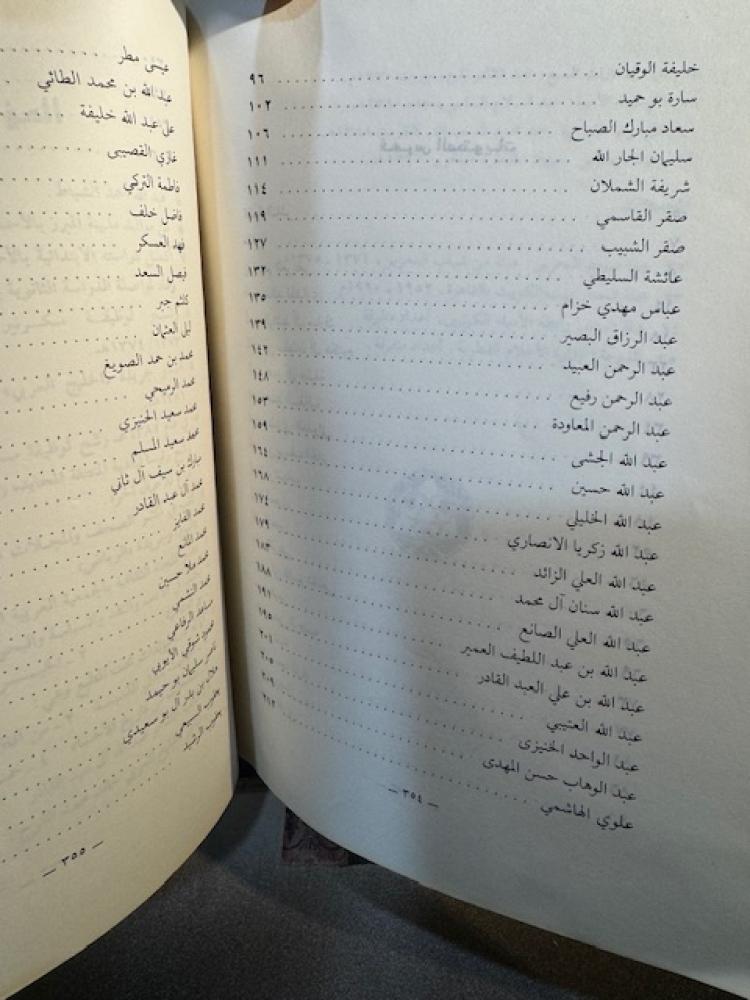 خليفة الوقيان ٩٦
سارة بو حميد ١٠٢
سعاد مبارك الصباح ١٠٦
سليمان الجار الله ١١١
شريفة الشملان ١١٤
صقر القاسمي ١١٩
صقر الشبيب ١٢٧
عائشة السليطي ١٣٢
عباس مهدي خزام ١٣٥
عبد الرزاق البصير ١٣٩
عبد الرحمن العبيد ١٤٢
عبد الرحمن رفيع ١٤٨
عبد الرحمن المعاودة ١٥٣
عبد الله الجشى ١٥٩
عبد الله حسين ١٦٤
عبد الله الخليلي ١٦٨
عبد الله زكريا الانصاري ١٧٤
عبد الله العلي الزائد ١٧٩
عبد الله سنان آل محمد ١٨٣
عبد الله العلي الصانع ١٨٨
عبد الله بن عبد اللطيف العمير ١٩١
عبد الله بن علي العبد القادر ١٩٥
عبد الله العتيبي ٢٠١
عبد الواحد الخنيزى ٢٠٥
عبد الوهاب حسن المهدى ٢٠٩
علوي الهاشمي ٢١٢
— ٣٥٤ —
عيسى مطر
عبد الله بن محمد الطائي
علي عبد الله خليفة
غازي القصيبي
فاطمة التركي
فاضل خلف
فهد العسكر
فيصل السعد
كلثم جبر
ليلى العثمان
محمد بن حمد الصويغ
محمد الرميحي
محمد سعيد الخنيزي
محمد سعيد المسلم
مبارك بن سيف آل ثاني
محمد آل عبد القادر
محمد الفايز
محمد المانع
محمد ملا حسين
محمد النشمي
مساعد الرفاعي
محمود شوقي الأيوبي
ناصر سليمان بو حيمد
هلال بن بدر آل بو سعيدي
يعقوب السبيعي
يعقوب الرشيد
— ٣٥٥ —